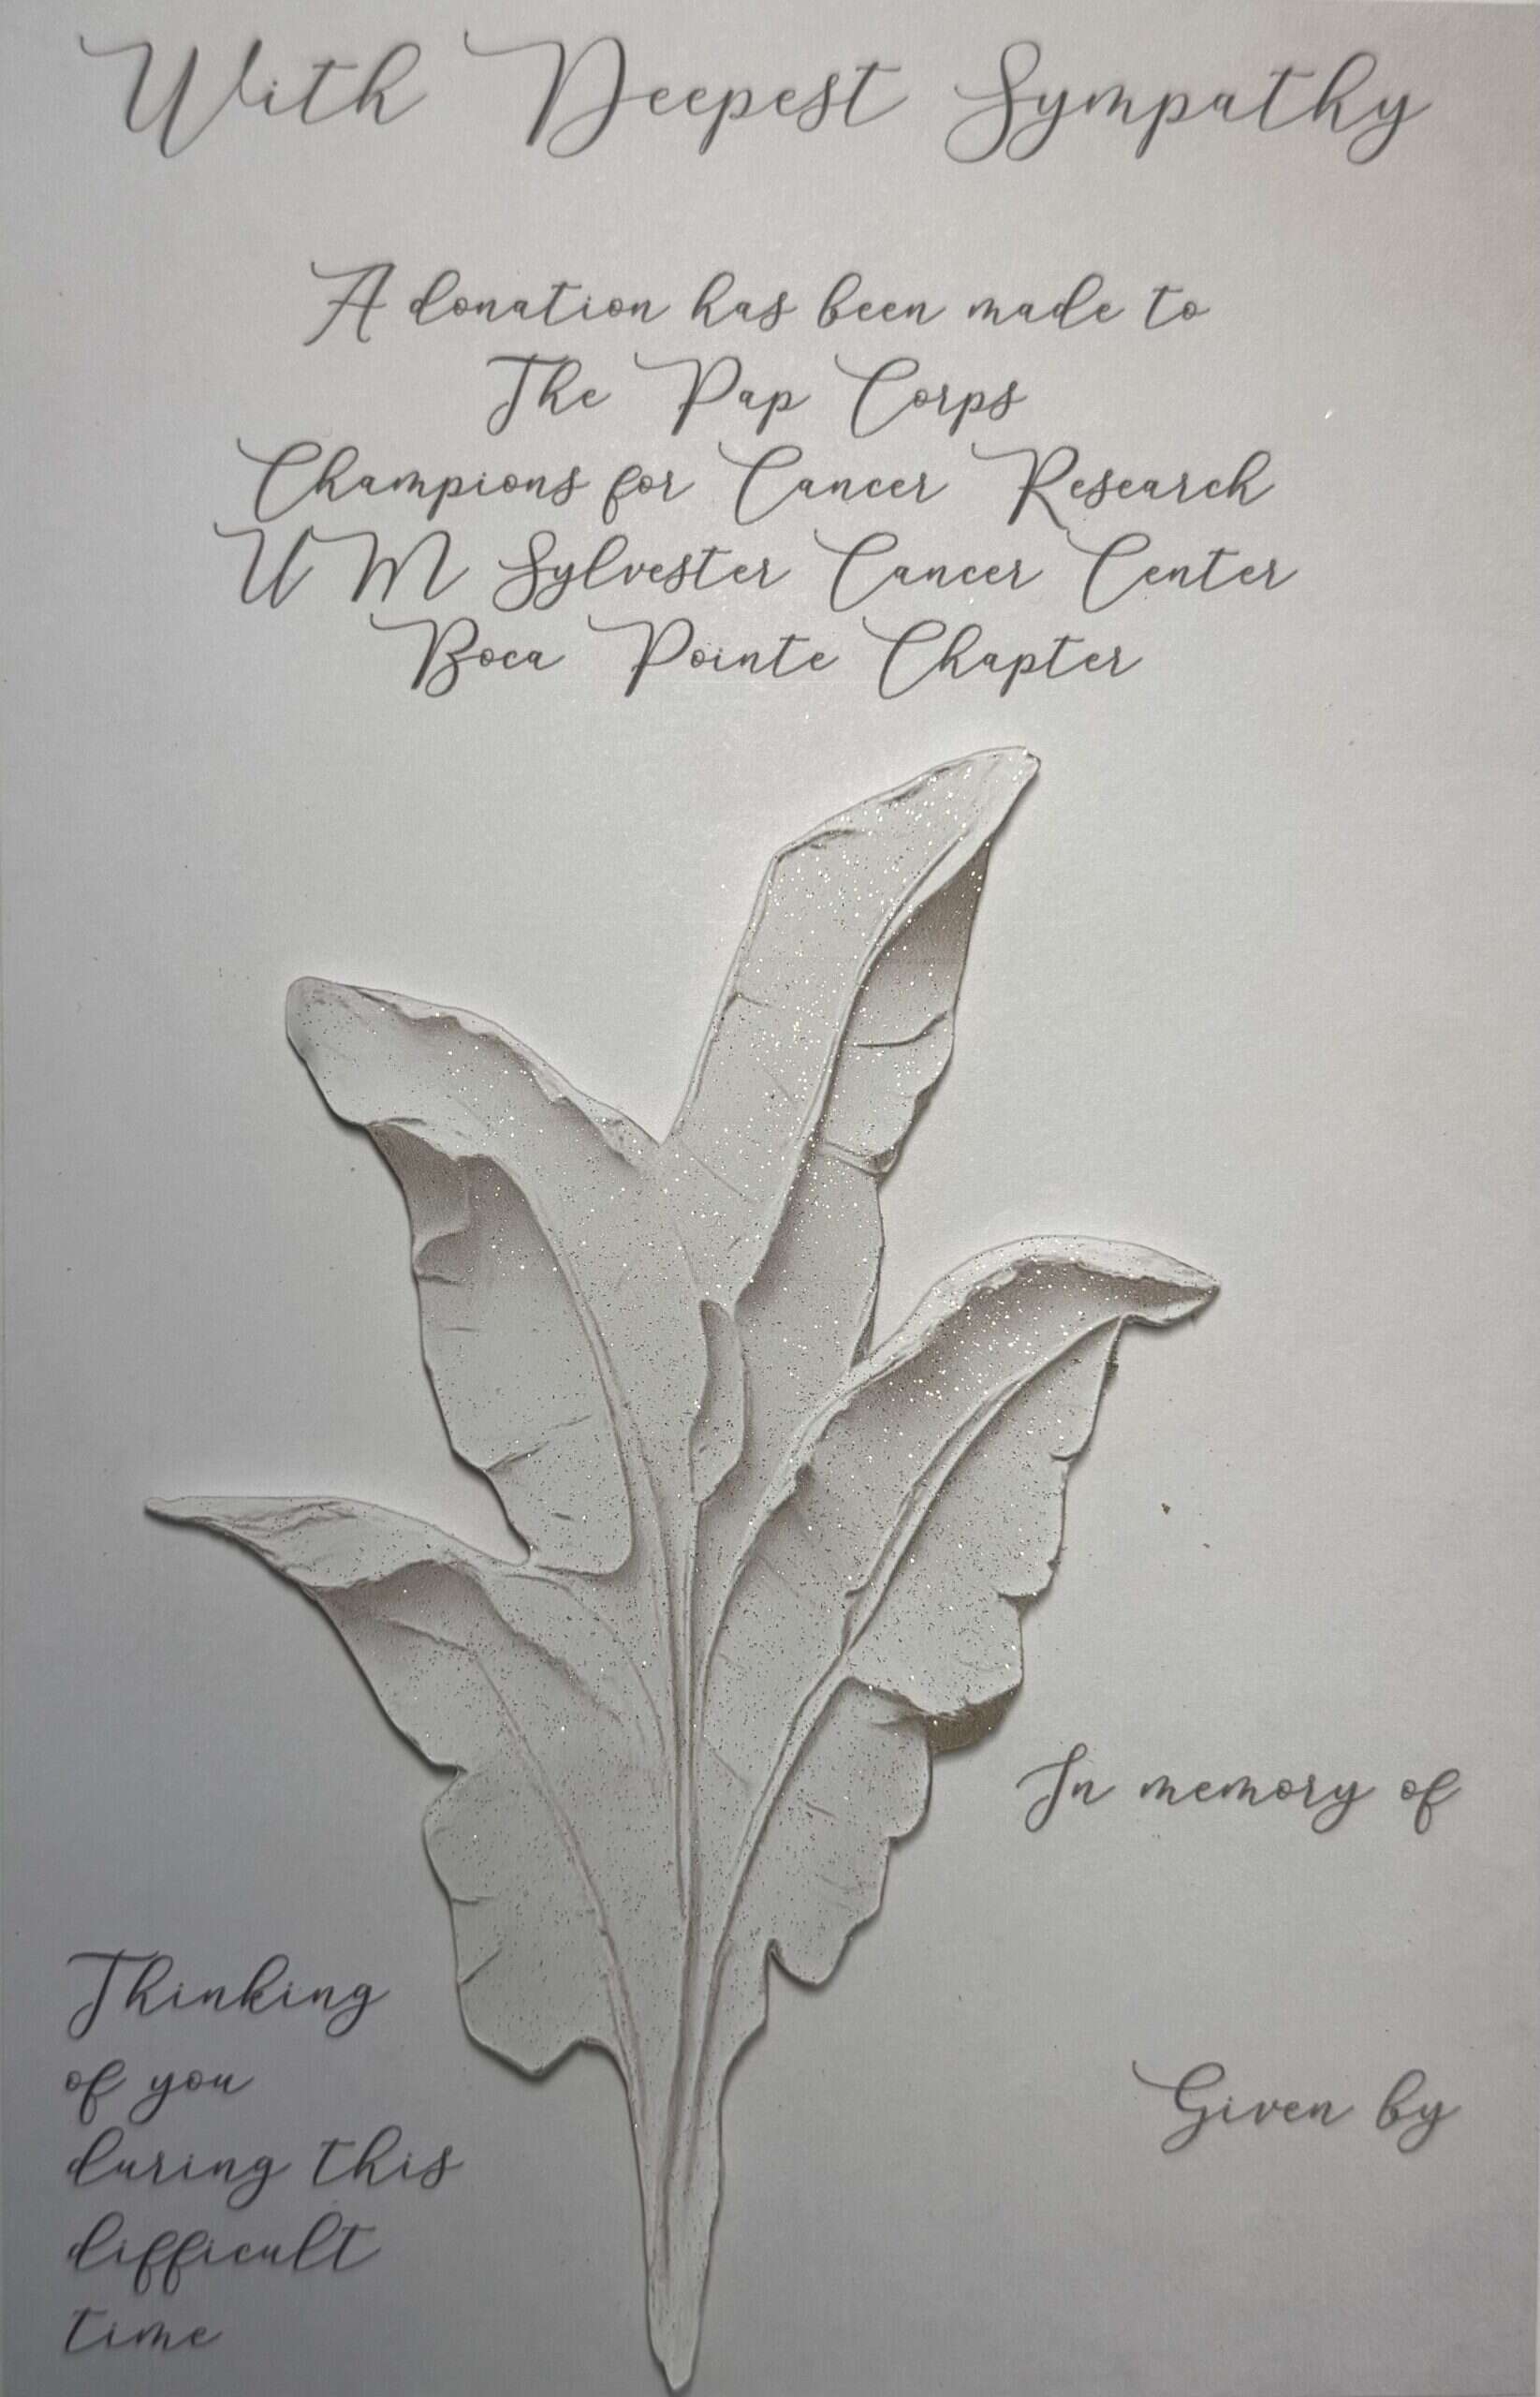 With Deepest Sympathy
A donation has been made to
The Pap Corps
Champions for Cancer Research
UM Sylvester Cancer Center
Boca Pointe Chapter
In memory of
Thinking
of you
during this
difficult
time
Given by